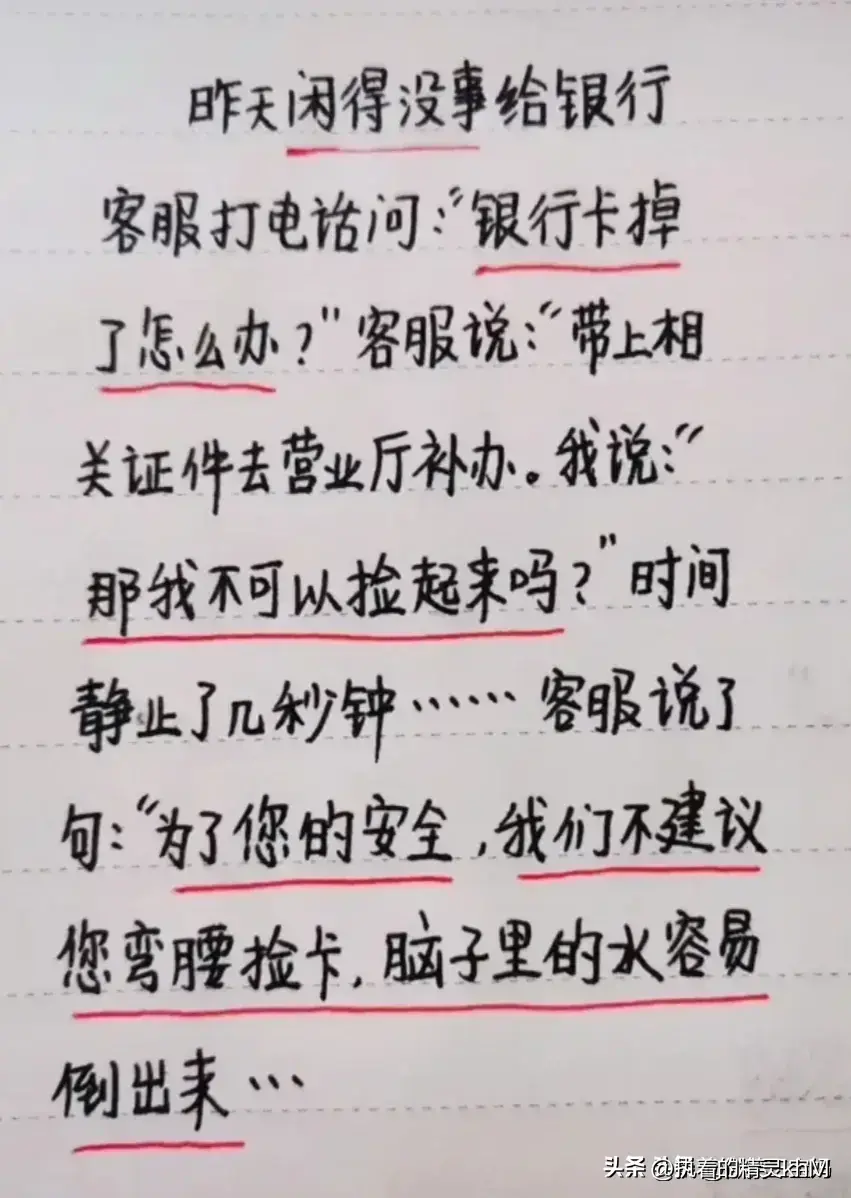 昨天闲得没事给银行
客服打电话问:“银行卡掉
了怎么办?”客服说:“带上相
关证件去营业厅补办。我说:“
那我不可以捡起来吗?”时间
静止了几秒钟……客服说了
句:“为了您的安全,我们不建议
您弯腰捡卡,脑子里的水容易
倒出来…
头条 @执着的精灵